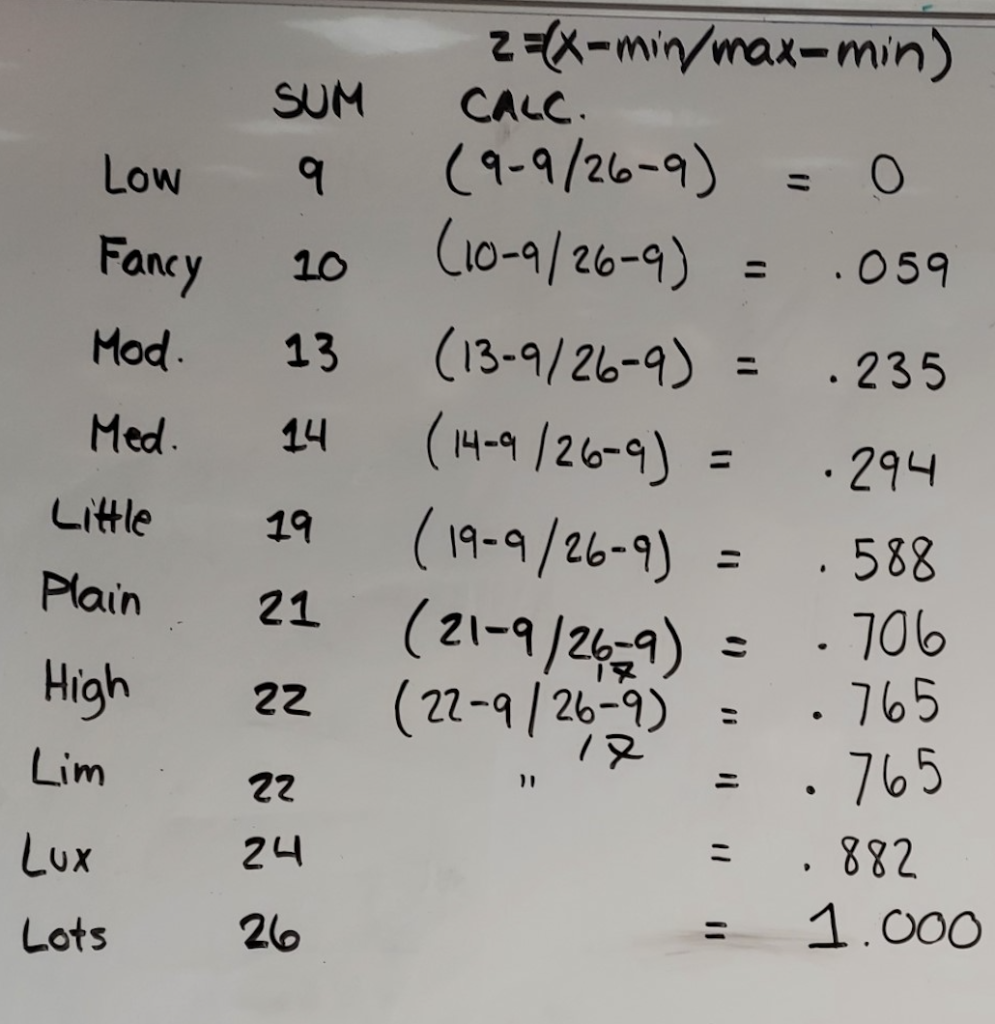 z=(x-min/max-min)
SUM CALC.
Low 9 (9-9/26-9) = 0
Fancy 10 (10-9/26-9) = .059
Mod. 13 (13-9/26-9) = .235
Med. 14 (14-9/26-9) = .294
Little 19 (19-9/26-9) = .588
Plain 21 (21-9/26-9) = .706
17
High 22 (22-9/26-9) = .765
17
Lim 22 " = .765
Lux 24 = .882
Lots 26 = 1.000